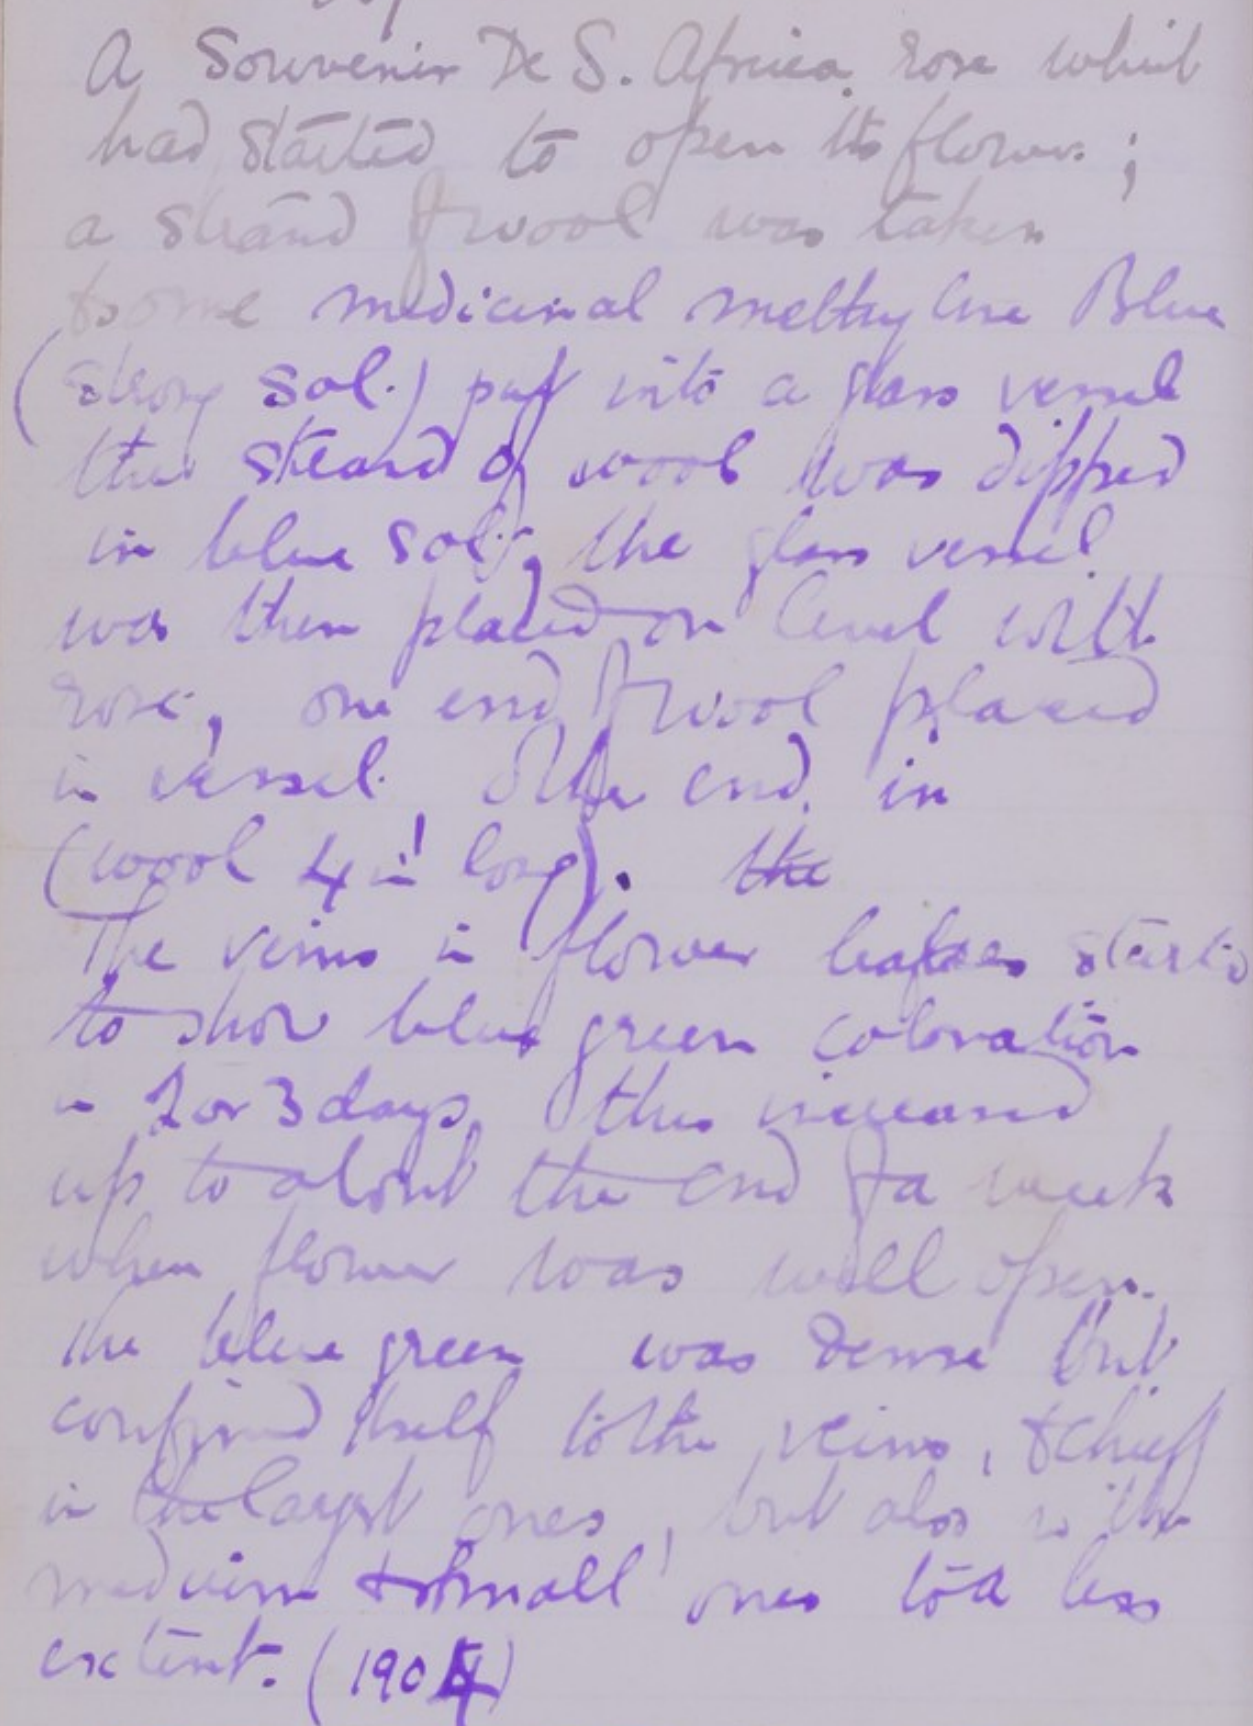 A Souvenir De S. Africa rose which
had started to open its flower;
a strand of wool was taken
& some medicinal methylene Blue
(strong sol.) put into a glass vessel
the strand of wool was dipped
in blue sol:, the glass vessel
was then placed on level with
rose, one end of wool placed
in vessel other end in
(wool 4 in long). the
The veins in flower leaves started
to show blue green coloration
in 2 or 3 days, this increased
up to about the end of a week
when flower was well open.
The blue green was dense but
confined itself to the veins, & chiefly
in the largest ones, but also in the
medium & small ones to a less
extent. (1904)